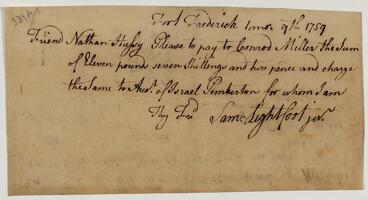 Fort Frederick 1 mo. 9th 1759
Friend Nathan Hussy Please to pay to Conrod Miller the Sum
of Eleven pounds seven Shillings and two pence and charge
the Same to Acct. of Israel Pemberton for whom I am
Thy Frd Saml. Lightfoot jur.